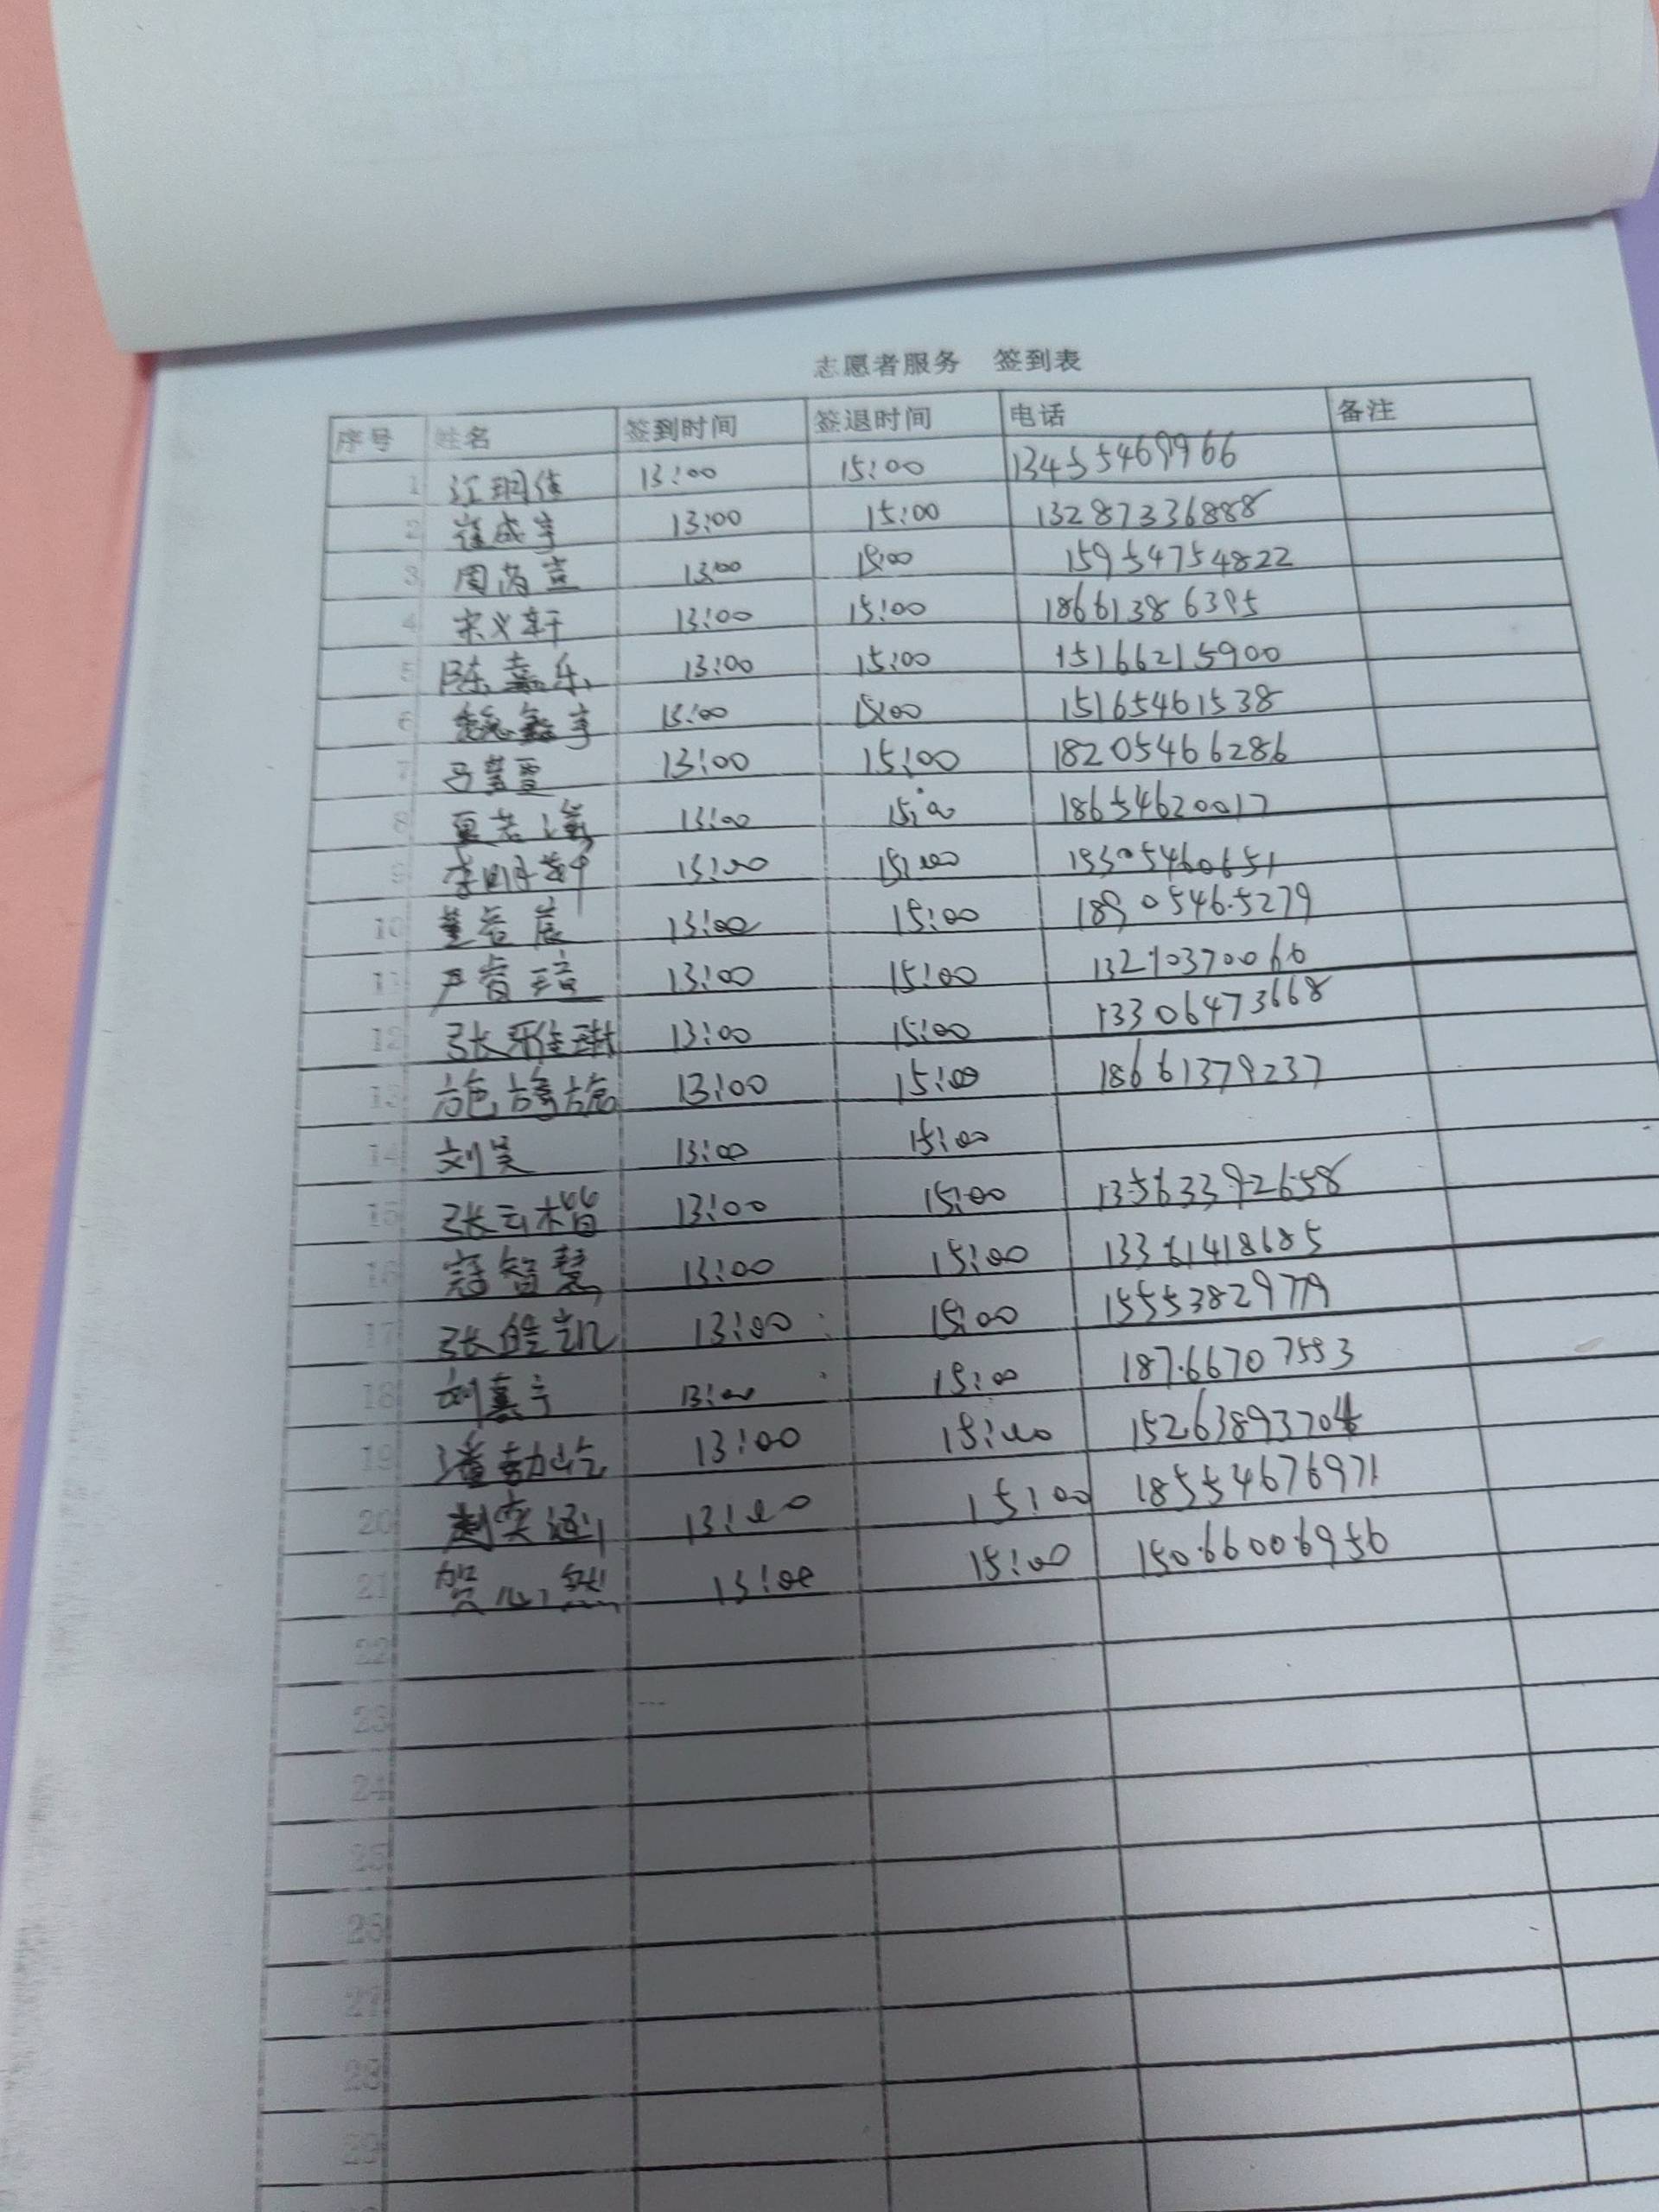 志愿者服务 签到表
序号 姓名 签到时间 签退时间 电话 备注
1 江明佳 13:00 15:00 13455469966
2 崔成宇 13:00 15:00 13287336888
3 周芮萱 13:00 15:00 15954754822
4 宋义轩 13:00 15:00 18661386395
5 陈嘉乐 13:00 15:00 15166215900
6 13:00 15:00 15165461538
7 13:00 15:00 18205466286
8 夏若溪 13:00 15:00 18654620017
9 李明轩 13:00 15:00 15305460651
10 董若晨 13:00 15:00 18905465279
11 严睿琦 13:00 15:00
12 张雅琳 13:00 15:00 13306473668
13 施旖旎 13:00 15:00 18661379237
14 刘昊 13:00 15:00
15 张云楷 13:00 15:00
16 寇智慧 13:00 15:00 13361418685
17 张皓凯 13:00 15:00 15553829779
18 刘嘉宁 13:00 15:00 18766707593
19 13:00 15:00 15263893704
20 13:00 15:00 18554676971
21 贺心然 13:00 15:00 15066006956
22
23
24
25
26
27
28
29